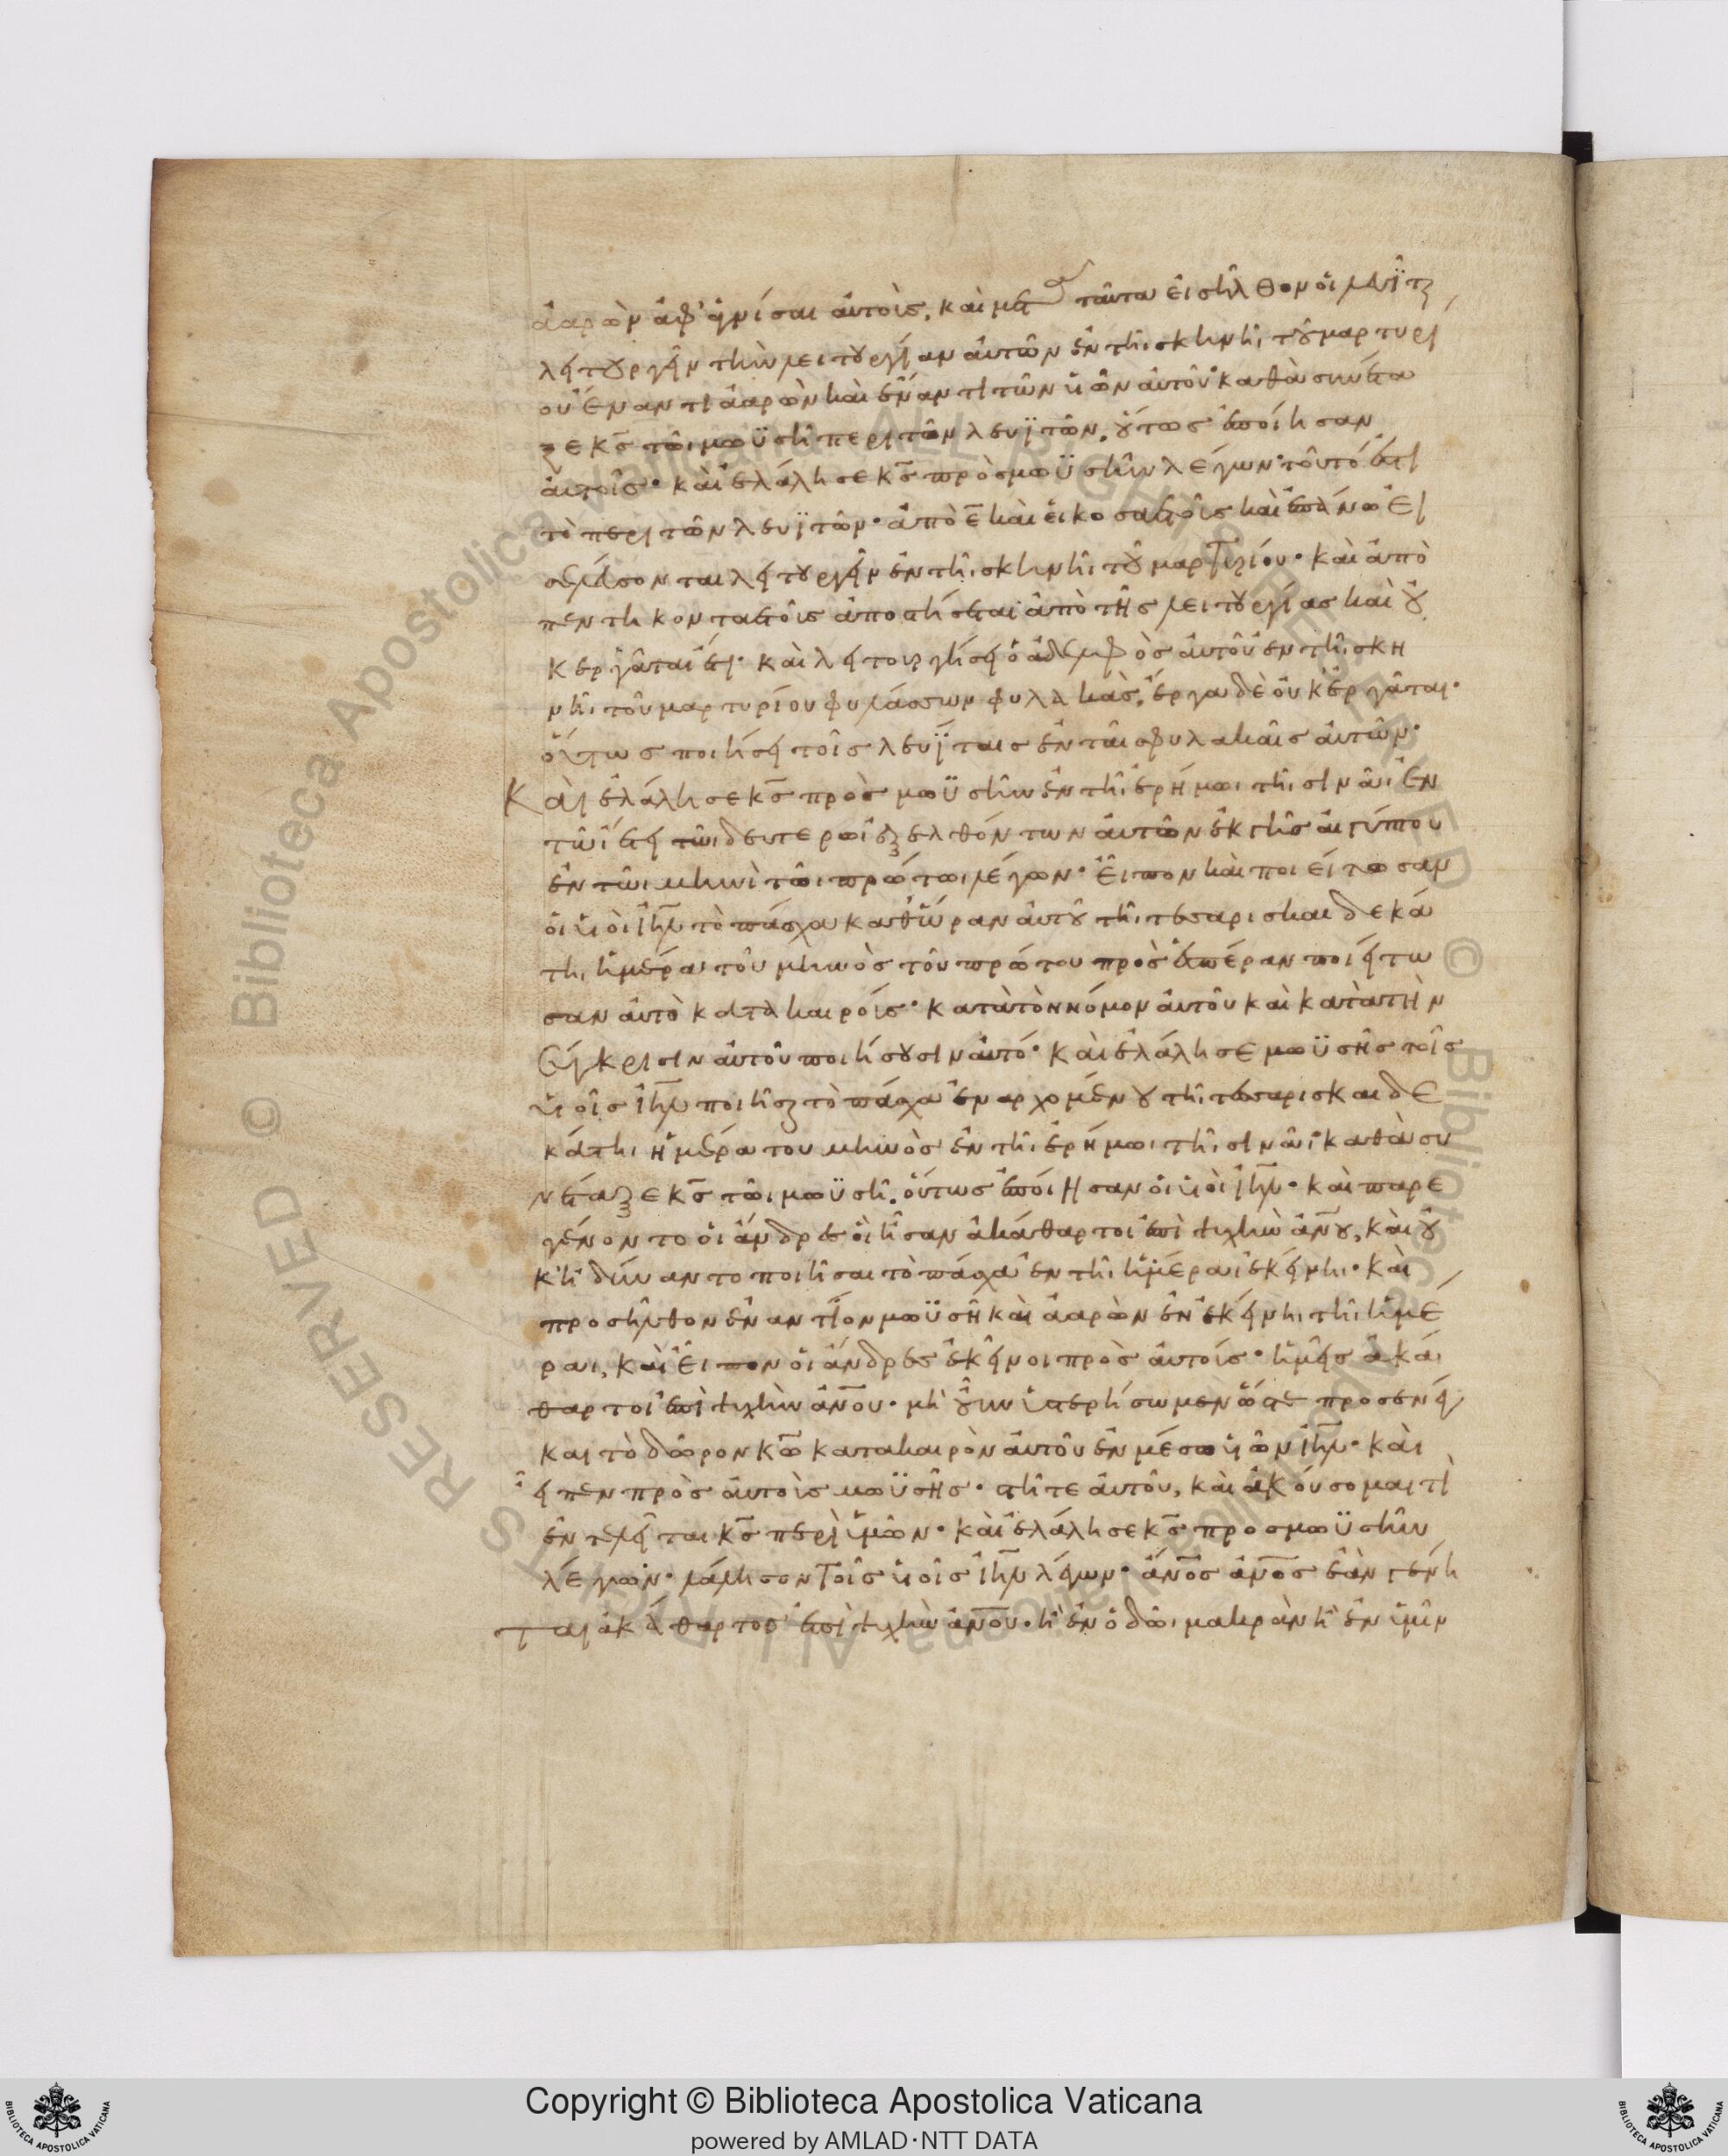 ἀαρὼν ἀφαγνίσαι αὐτοὺς, καὶ μετὰ ταῦτα εἰσῆλθον οἱ λευῖται
λειτουργεῖν τὴν λειτουργίαν αὐτῶν ἐν τῆι σκηνῆι τοῦ μαρτυρί
ου ἔναντι ἀαρὼν καὶ ἔναντι τῶν υἱῶν αὐτοῦ· καθὰ συνέτα
ξε κ̅ς̅ τῶι μωϋσῆ περὶ τῶν λευϊτῶν, οὕτως ἐποίησαν
αὐτοῖς· καὶ ἐλάλησε κ̅ς̅ πρὸς μωϋσῆν λέγων· τοῦτό ἐστι
τὸ περὶ τῶν λευϊτῶν· ἀπὸ ε̅ καὶ εἰκοσαετοῦς καὶ ἐπάνω εἰ
σελεύσονται λειτουργεῖν ἐν τῆι σκηνῆι τοῦ μαρτυρίου· καὶ ἀπὸ
πεντηκονταετοῦς ἀποστήσεται ἀπὸ τῆς λειτουργίας καὶ οὐ
κ ἐργᾶται ἔτι· καὶ λειτουργήσει ὁ ἀδελφὸς αὐτοῦ ἐν τῆι σκη
νῆι τοῦ μαρτυρίου φυλάσσων φυλακὰς, ἔργα δὲ οὐκ ἐργᾶται·
οὕτως ποιήσει τοῖς λευΐταις ἐν ταῖς φυλακαῖς αὐτῶν·
Καὶ ἐλάλησε κ̅ς̅ πρὸς μωϋσῆν ἐν τῆι ἐρήμωι τῆι σινᾶι ἐν
τῶι ἔτει τῶι δευτέρωι ἐξελθόντων αὐτῶν ἐκ γῆς αἰγύπτου
ἐν τῶι μηνὶ τῶι πρώτωι λέγων· εἶπον καὶ ποιείτωσαν
οἱ υἱοὶ ι̅η̅λ̅ τὸ πάσχα καθ' ὥραν αὐτοῦ τῆι τεσσαρισκαιδεκά
τηι ἡμέρα τοῦ μηνὸς τοῦ πρώτου πρὸς ἑσπέραν ποιείτω
σαν αὐτὸ κατὰ καιρούς· κατὰ τὸν νόμον αὐτοῦ καὶ κατὰ τὴν
σύγκρισιν αὐτοῦ ποιήσουσιν αὐτό· καὶ ἐλάλησε μωϋσῆς τοῖς
υἱοῖς ι̅η̅λ̅ ποιῆσαι τὸ πάσχα ἐναρχομένου τῆι τεσσαρισκαιδε
κάτηι ἡμέρα του μηνὸς ἐν τῆι ἐρήμωι τῆι σινᾶι· καθὰ συ
νέταξε κ̅ς̅ τῶι μωϋσῆ, οὕτως ἐποίησαν οἱ υἱοὶ ι̅η̅λ̅· καὶ παρε
γένοντο οἱ ἄνδρες οἳ ἦσαν ἀκάθαρτοι ἐπὶ ψυχῆ α̅ν̅ου, καὶ οὐ
κ ἠδύναντο ποιῆσαι τὸ πάσχα ἐν τῆι ἡμέραι ἐκείνηι· καὶ
προσῆλθον ἐναντίον μωϋσῆ καὶ ἀαρὼν ἐν ἐκείνηι τῆι ἡμέ
ραι, καὶ εἶπον οἱ ἄνδρες ἐκεῖνοι πρὸς αὐτούς· ἡμεῖς ἀκά
θαρτοι ἐπὶ ψυχῆ α̅ν̅ου· μὴ οὖν ὑστερήσωμεν ὥστε προσενέγ
και τὸ δῶρον κ̅ω̅ κατα καιρὸν αὐτοῦ ἐν μέσω υἱῶν ι̅η̅λ̅· καὶ
εἶπεν πρὸς αὐτοὺς μωϋσῆς· στῆτε αὐτοῦ, καὶ ἀκούσομαι τί
ἐντελεῖται κ̅ς̅ περὶ ὑμῶν· καὶ ἐλάλησε κ̅ς̅ προς μωϋσῆν
λέγων· λάλησον τοῖς υἱοῖς ι̅η̅λ̅ λέγων· α̅ν̅ος α̅ν̅ος ἐὰν γένη
ται ἀκάθαρτος ἐπὶ ψυχῆ α̅ν̅ου· ἢ ἐν ὁδῶι μακρὰν ἢ ἐν ὑμῖν
Copyright © Biblioteca Apostolica Vaticana
powered by AMLAD·NTT DATA